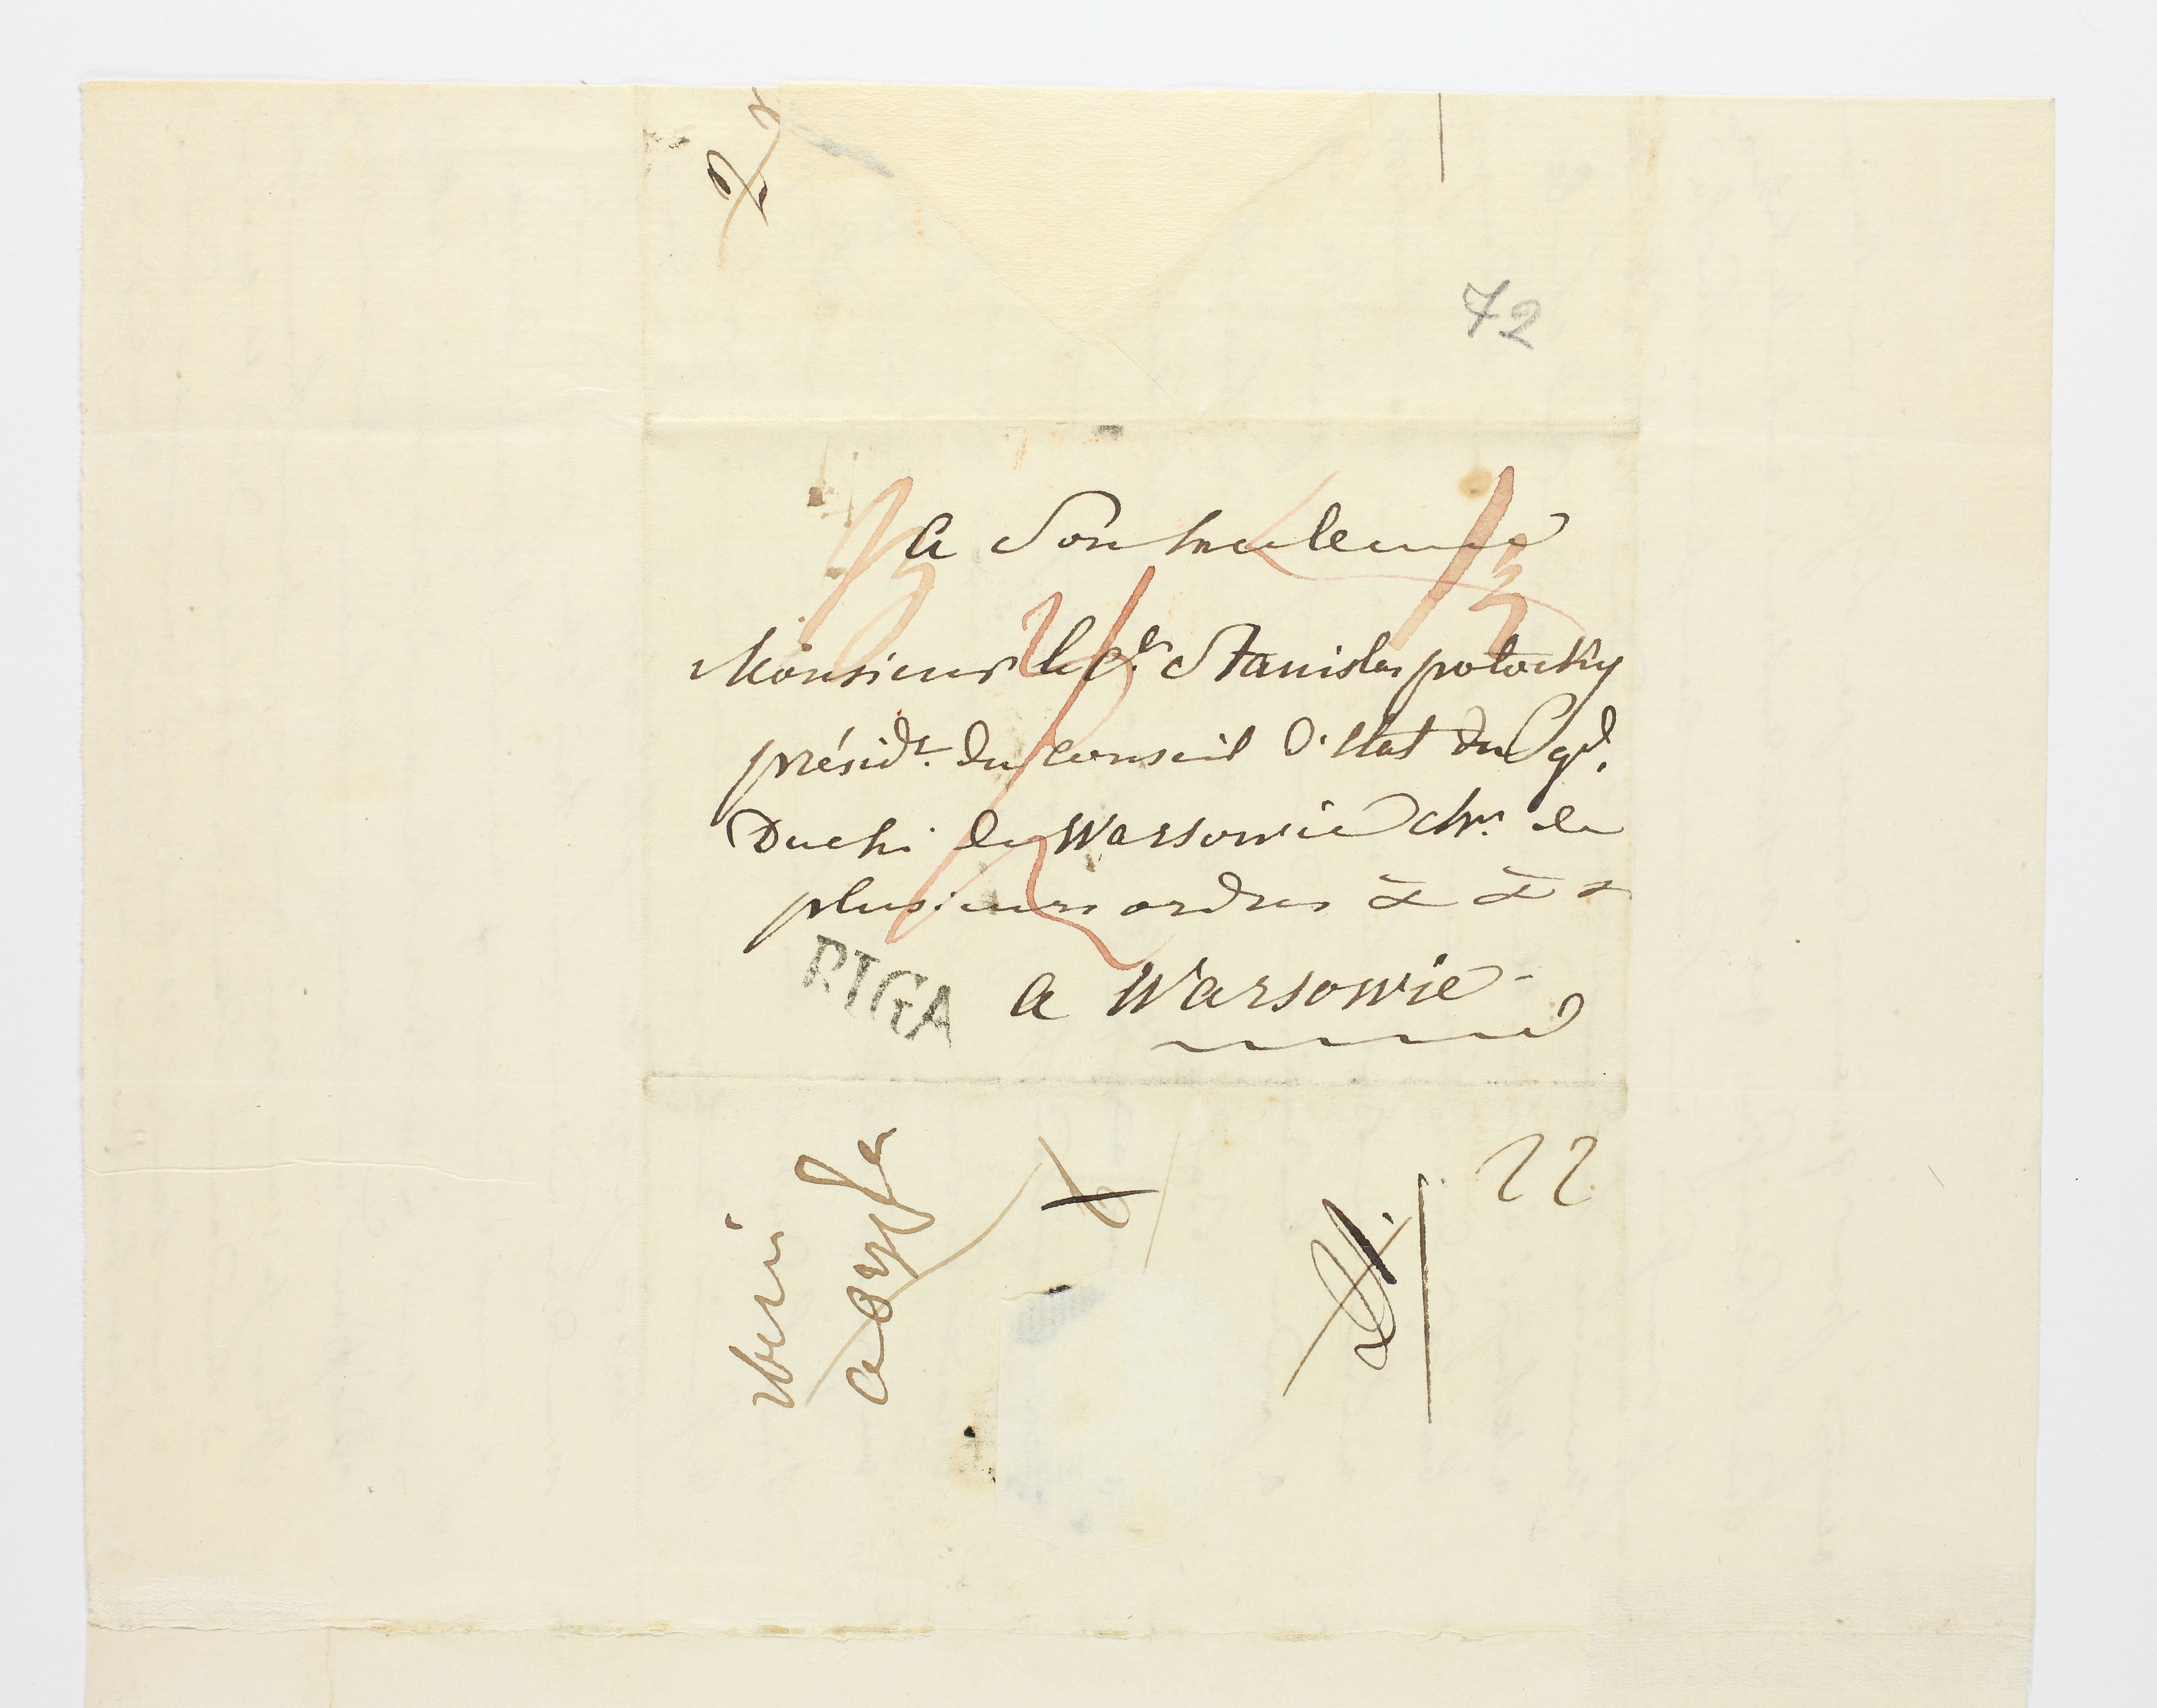 72
a Son Excellence
Monsieur le Cte Stanislas potocky
présidt. du Conseil d'Etat du gd.
Duché de Warsowie chr. de
plusieurs ordres
RIGA
a Warsowie
22